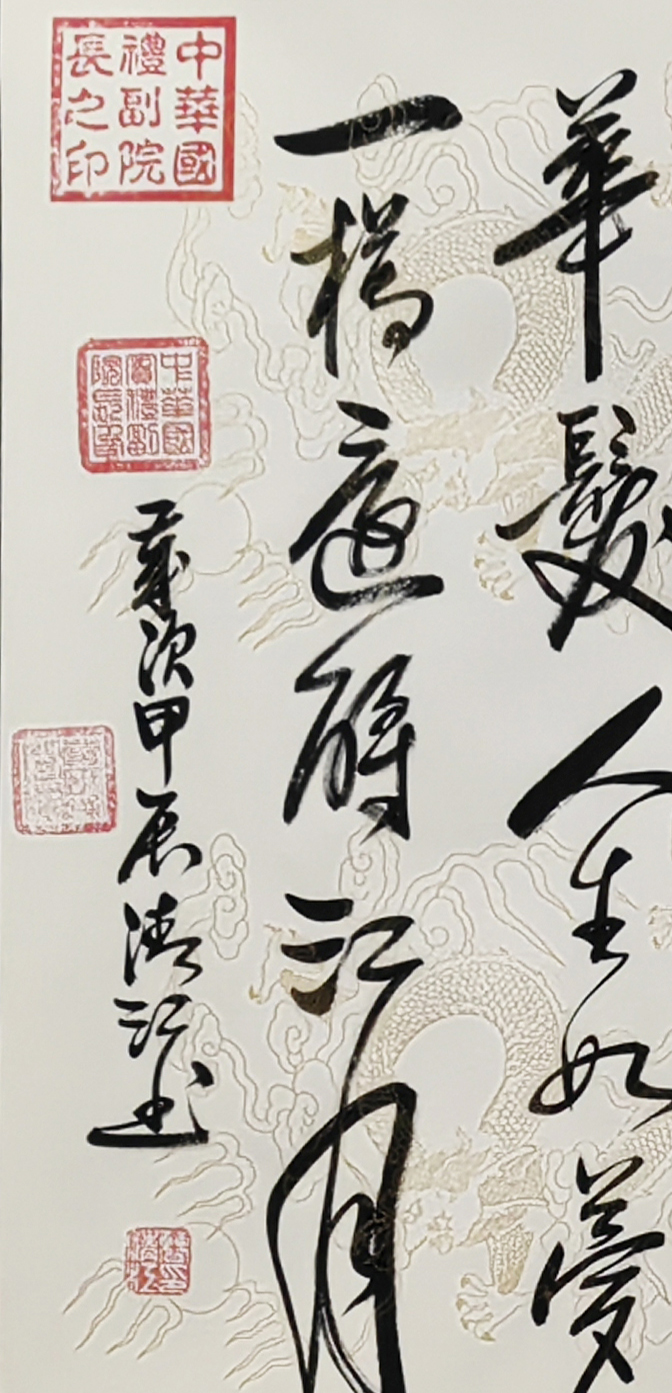 華髮人生如夢
一樽還酹江月
中華國禮副院長之印
中華國賓禮副院長印
歲次甲辰清江书